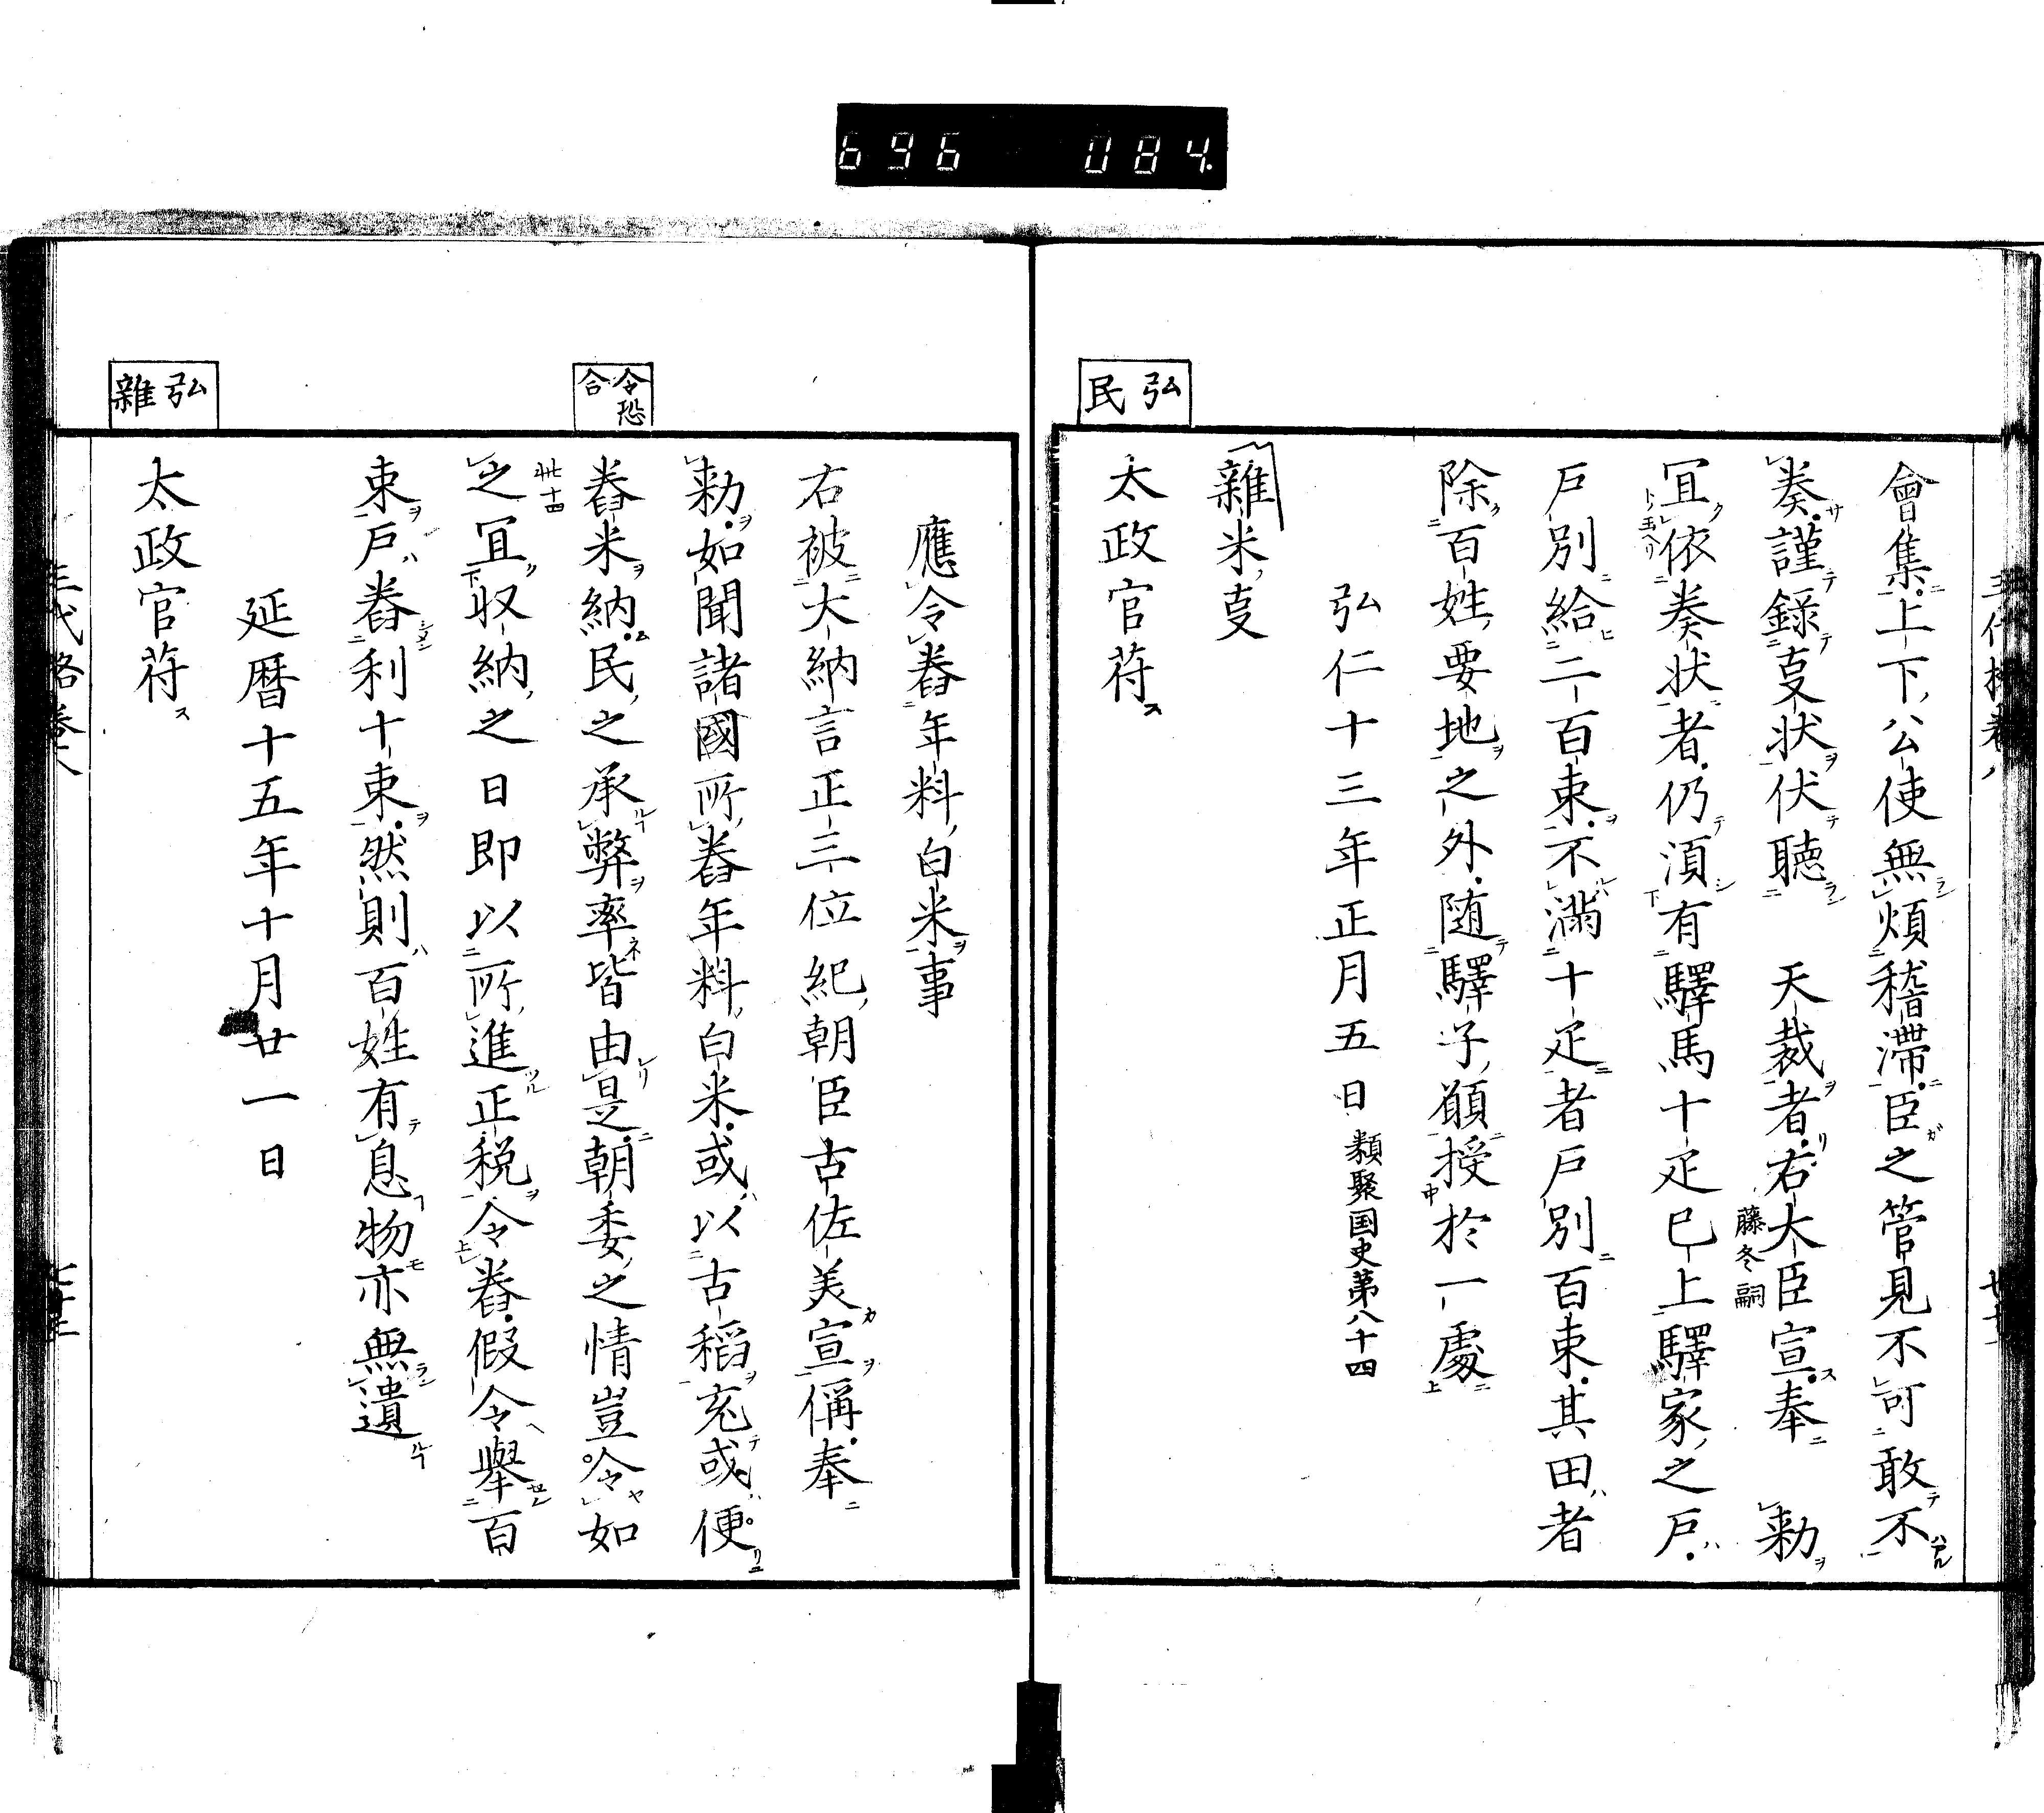 696 084
弘民
會集上下公使無煩稽滯臣之管見不可敢不
奏謹錄叓状伏聴 天裁者右大臣宣奉 勅
藤冬嗣
冝依奏状者仍湏有驛馬十疋已上驛家之戸
戸別給二百束不満十疋者戸別百束其田者
除百姓要地之外随驛子願授於一處
弘仁十三年正月五日 類聚国史第八十四
雜米叓
太政官苻
令恐合
弘雜
應令舂年料白米事
右被大納言正三位紀朝臣古佐美宣偁奉
勅如聞諸國所舂年料白米或以古稻充或便
舂米納民之承弊率皆由是朝委之情豈令如
之冝収納之日即以所進正税令舂假令擧百
束戸舂利十束然則百姓有息物亦無遺
延暦十五年十月廿一日
太政官苻